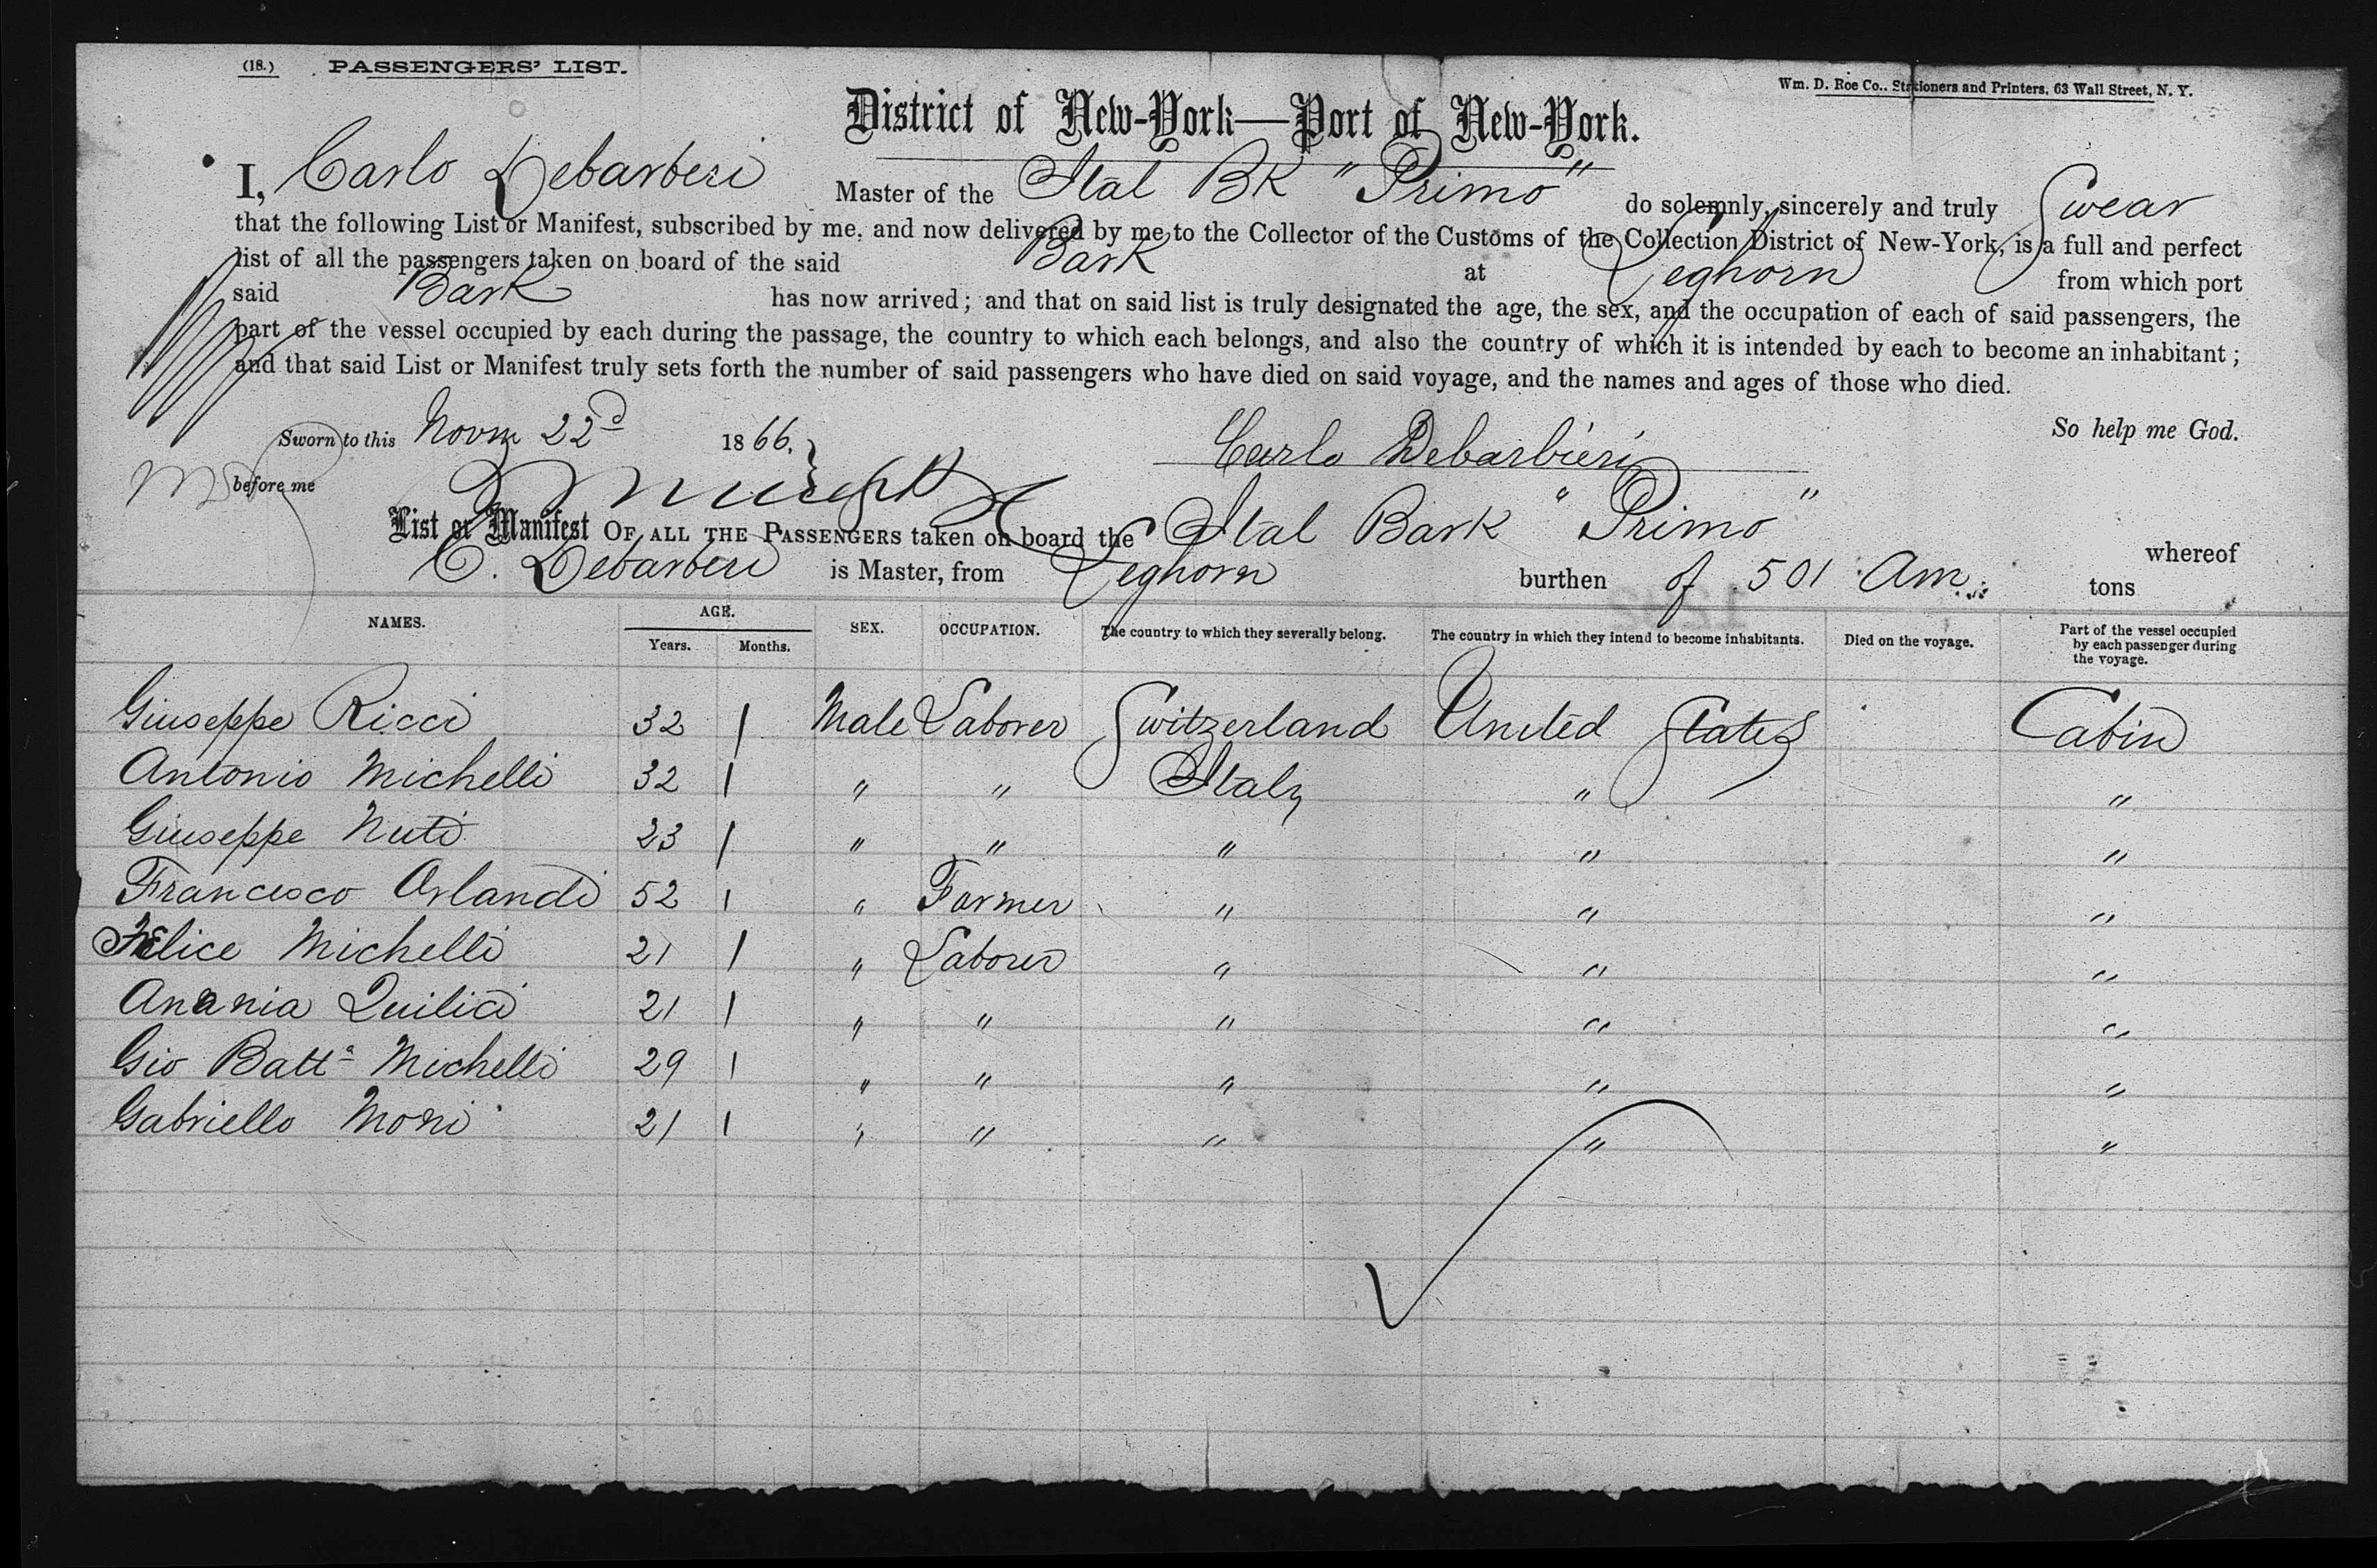 (18.) PASSENGERS' LIST.
Wm. D. Roe Co., Stationers and Printers, 63 Wall Street, N. Y.
District of New-York—Port of New-York.
I, Carlo Debarberi Master of the Ital Bk "Primo" do solemnly, sincerely and truly Swear
that the following List or Manifest, subscribed by me, and now delivered by me to the Collector of the Customs of the Collection District of New-York, is a full and perfect
list of all the passengers taken on board of the said Bark at Leghorn from which port
said Bark has now arrived; and that on said list is truly designated the age, the sex, and the occupation of each of said passengers, the
part of the vessel occupied by each during the passage, the country to which each belongs, and also the country of which it is intended by each to become an inhabitant;
and that said List or Manifest truly sets forth the number of said passengers who have died on said voyage, and the names and ages of those who died.
So help me God.
Sworn to this Novm 22d 1866.
Carlo Debarbieri
before me
List or Manifest OF ALL THE PASSENGERS taken on board the Ital Bark "Primo" whereof
C. Debarberi is Master, from Leghorn burthen of 501 Am. tons
NAMES. AGE. Years. Months. SEX. OCCUPATION. The country to which they severally belong. The country in which they intend to become inhabitants. Died on the voyage. Part of the vessel occupied by each passenger during the voyage.
Giuseppe Ricci 32 / Male Laborer Switzerland United States Cabin
Antonio Michelli 32 / " " Italy " "
Giuseppe Nuti 23 / " " " " "
Francesco Orlandi 52 / " Farmer " " "
Felice Michelli 21 / " Laborer " " "
Anania Quilici 21 / " " " " "
Gio Batta Michelli 29 / " " " " "
Gabriello Moni 21 / " " " " "